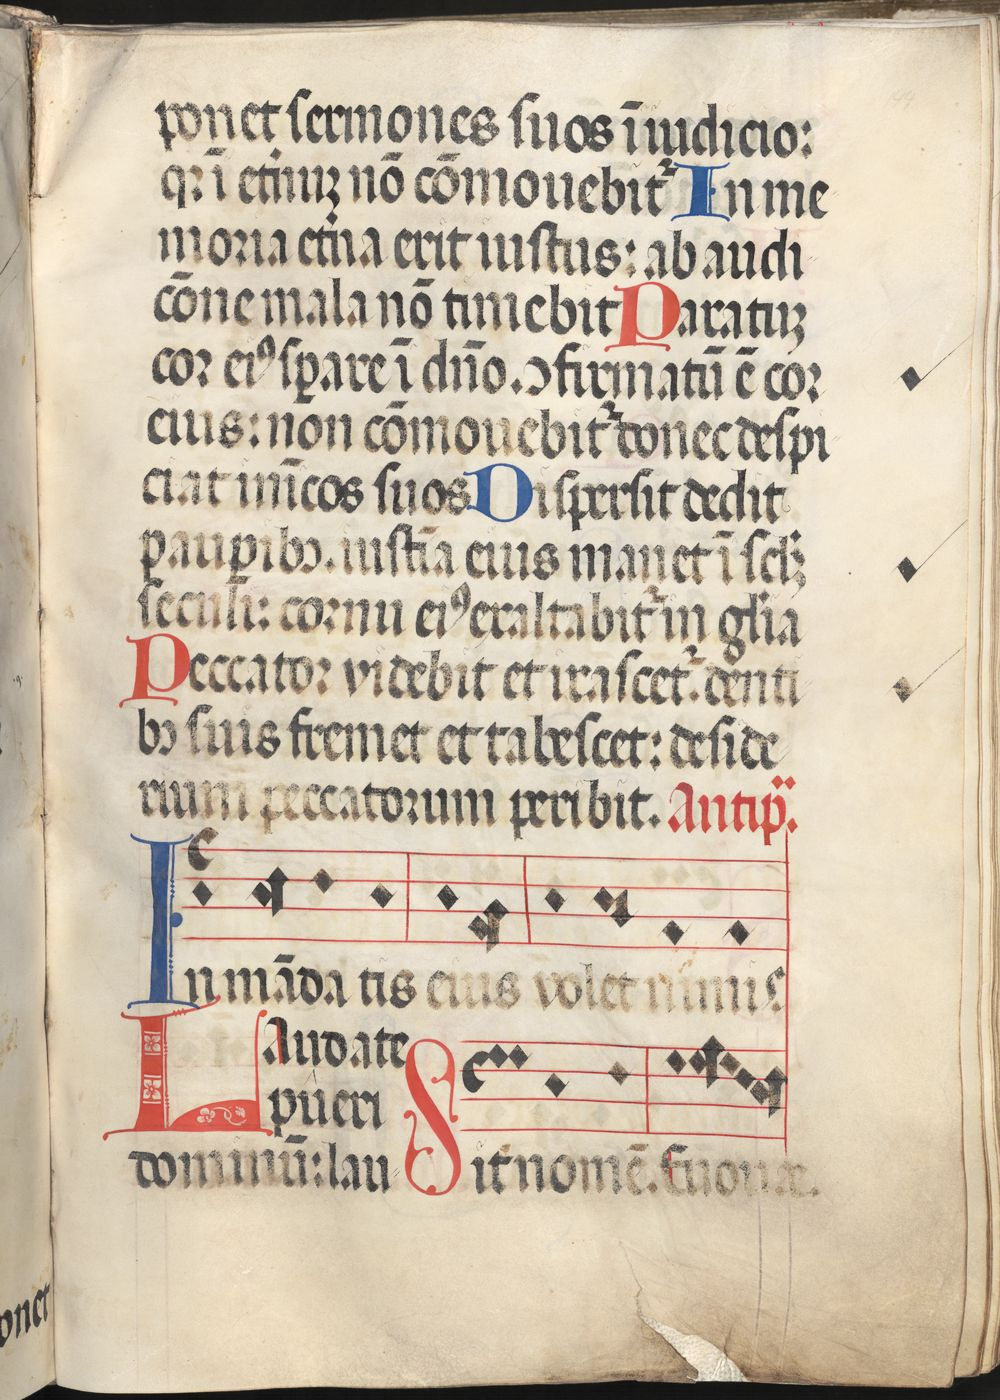 ponet sermones suos ī iudicio:
qꝛ ī et̄nuꝫ nō cōmouebit᷑ In me
moria et̄na erit iustus: ab audi
cōne mala nō timebit Paratuꝫ
cor eiꝰ sꝑare ī dn̄o. ↄfirmatū ē cor
eius: non cōmouebit᷑ donec despi
ciat inīcos suos Dispersit dedit
pauꝑibꝫ. iustīa eius manet ī sclꝫ
seculi: cornu eiꝰ exaltabit᷑ in glīa
Peccator videbit et irascet᷑. denti
bꝫ suis fremet et tabescet: deside
rium peccatorum peribit. Antip̄.
In māda tis eius volet nimis
Laudate
pueri
dominū: lau Sit nomē. Euouae.
onet